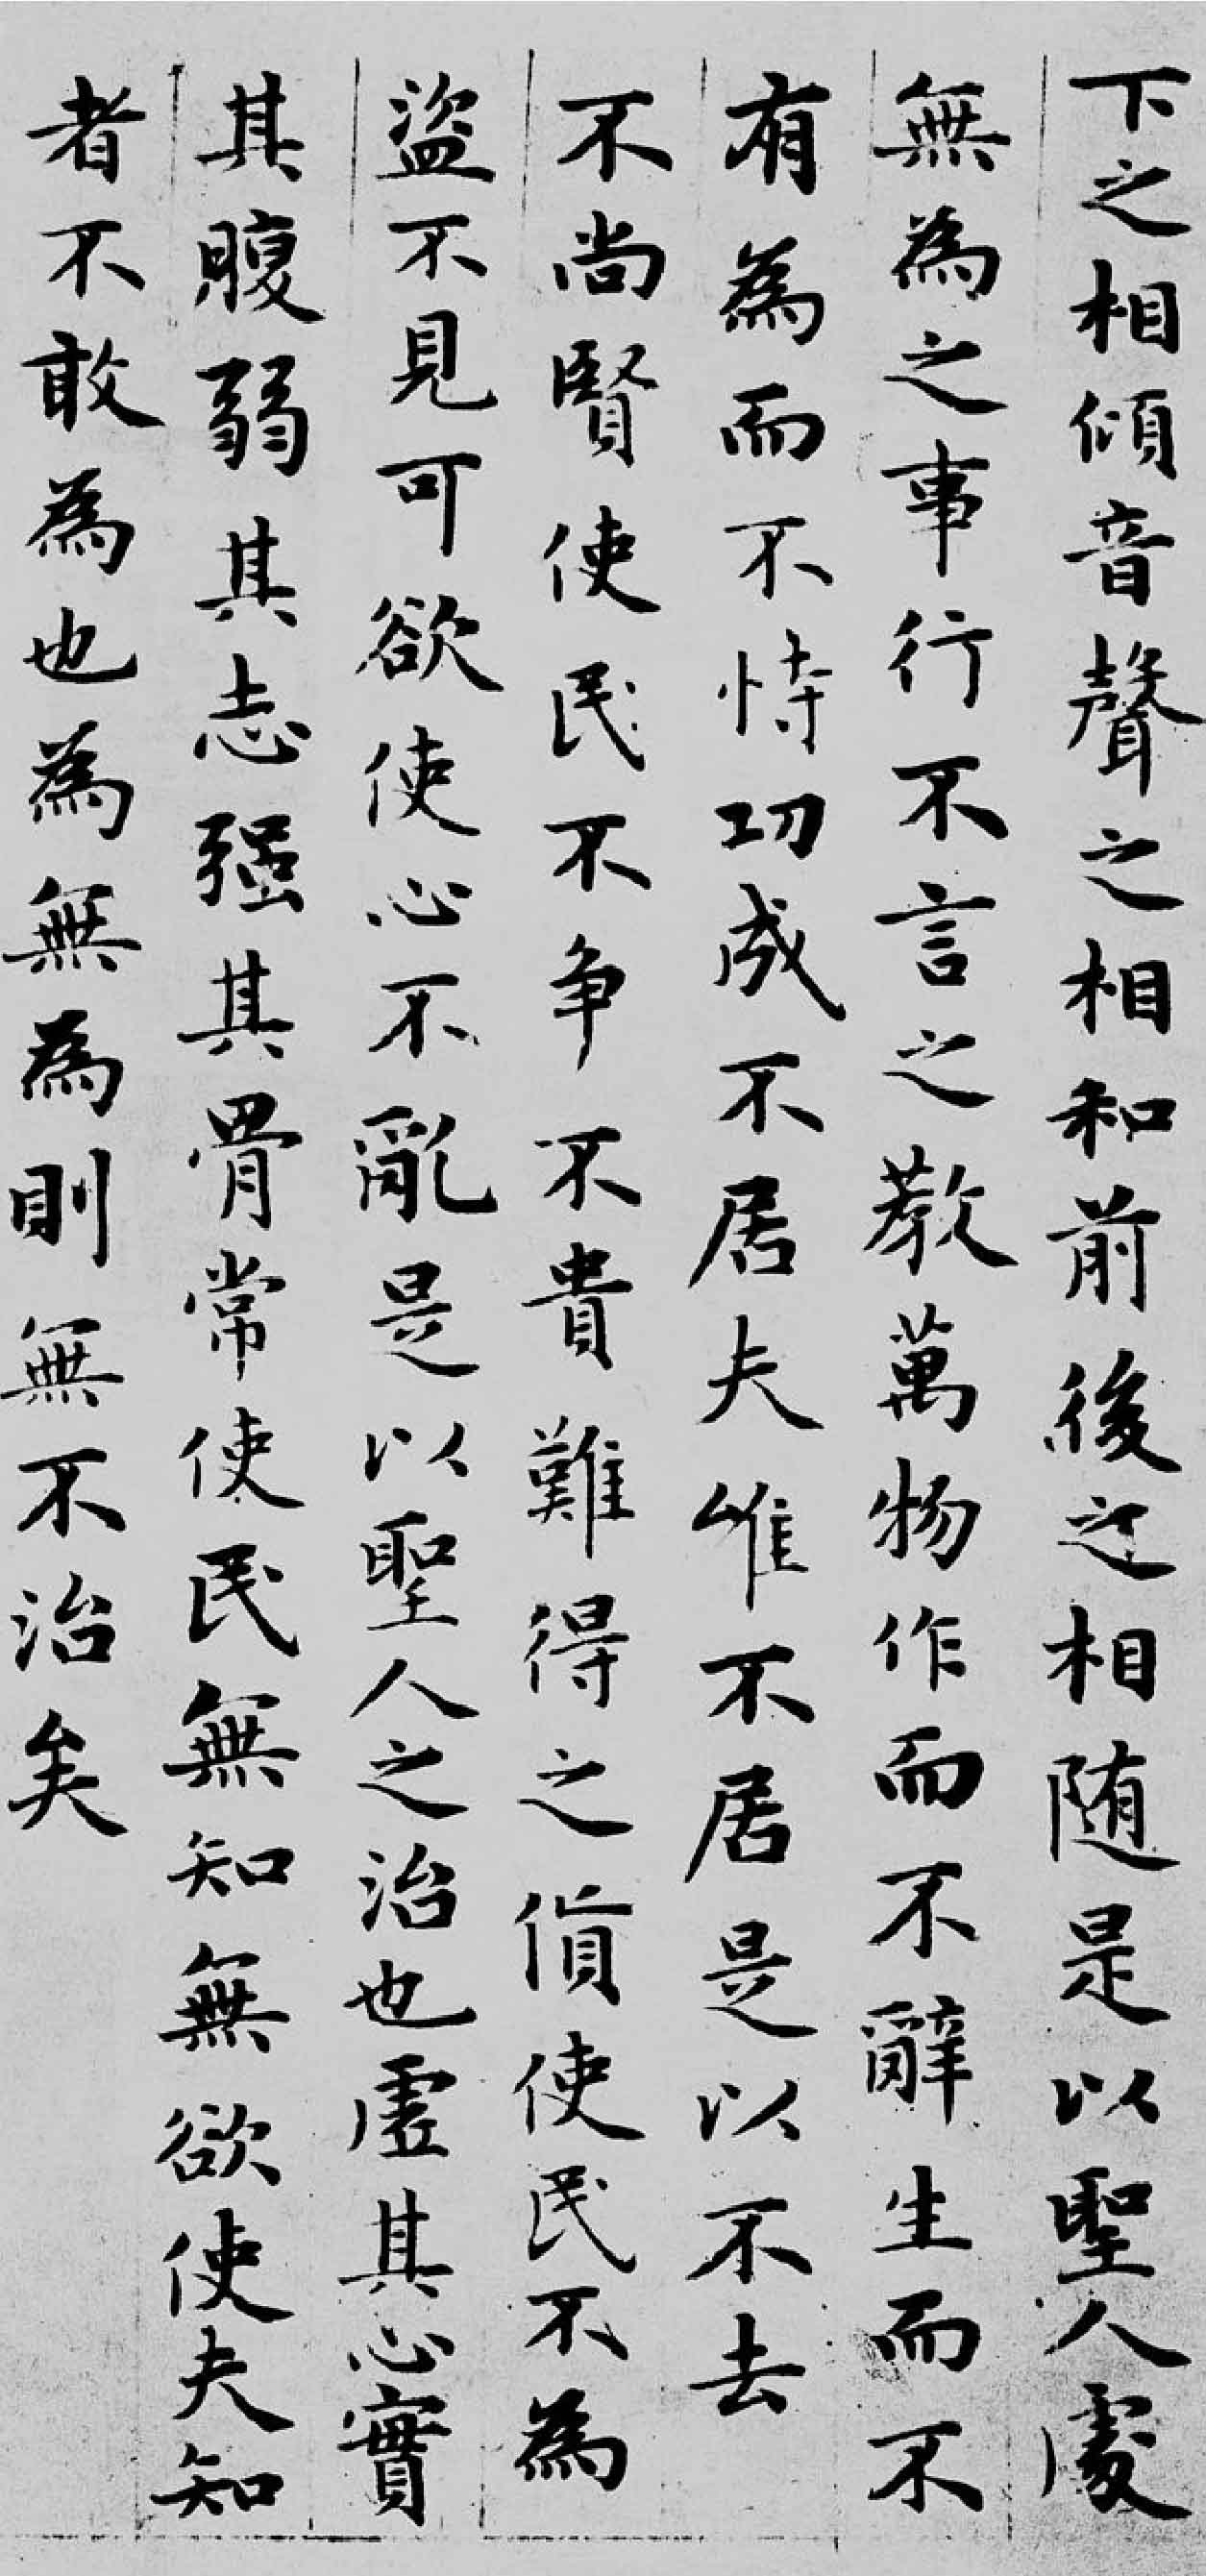 下之相傾音聲之相和前後之相随是以聖人處
無為之事行不言之教萬物作而不辭生而不
有為而不恃功成不居夫唯不居是以不去
不尚賢使民不争不貴難得之貨使民不為
盗不見可欲使心不亂是以聖人之治也虛其心實
其腹弱其志强其骨常使民無知無欲使夫知
者不敢為也為無為則無不治矣